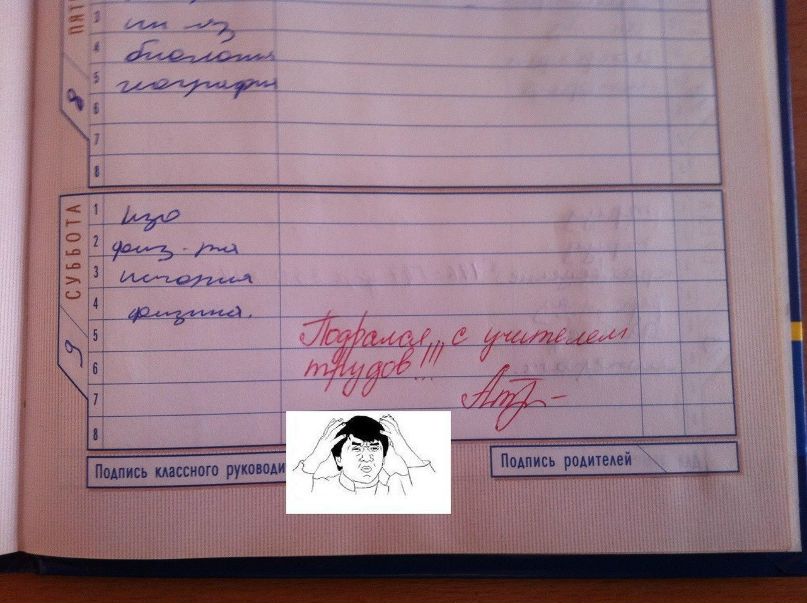 ПЯТ
3 ин яз
4 биология
5 география
6
7
8
8
СУББОТА
9
1 Изо
2 физ-ра
3 история
4 физика.
5 Подрался с учителем
6 трудов!!!
7
8
Подпись классного руководи
Подпись родителей